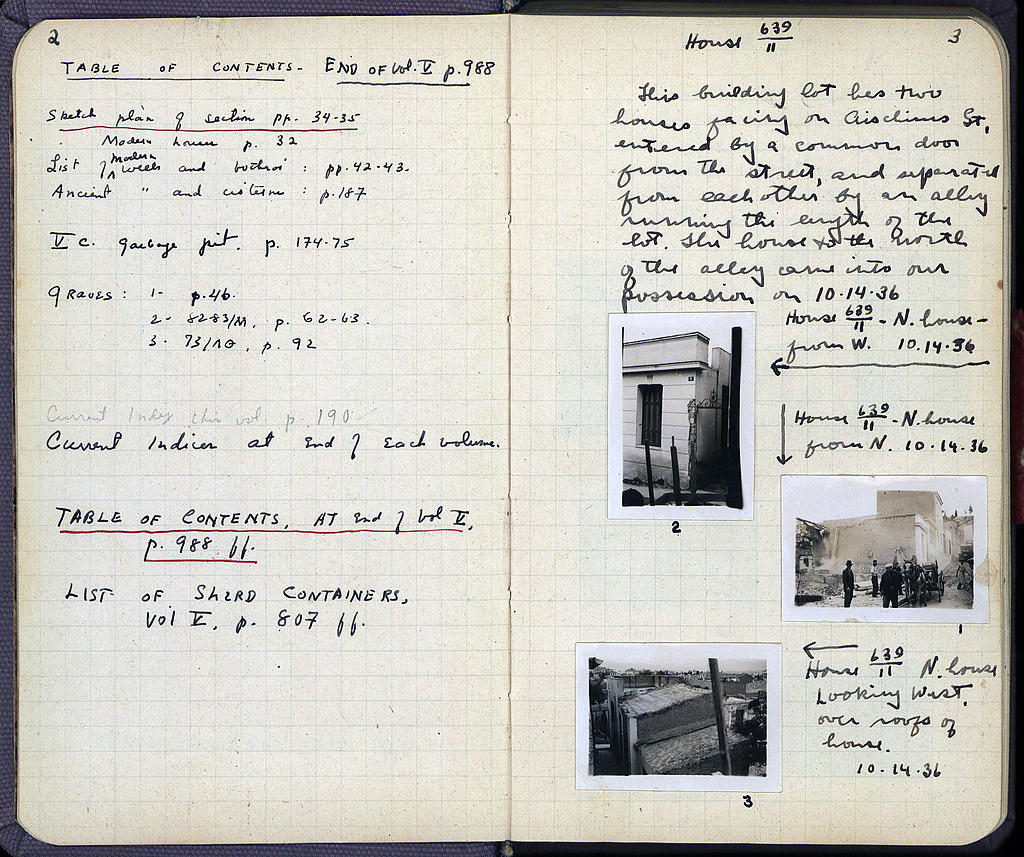 2
TABLE OF CONTENTS - END OF Vol. V p. 988
Sketch plan of section pp. 34-35
Modern houses p. 32
List of Modern wells and bothroi : pp. 42-43.
Ancient " and cisterns : p. 187
V c. garbage pit. p. 174-75
GRAVES : 1- p. 46.
2- 8283/M, p. 62-63.
3. 73/ΛΘ, p. 92
Current Index this vol. p. 190
Current Indices at End of Each volume.
TABLE OF CONTENTS, AT End of Vol V,
p. 988 ff.
LIST OF SHERD CONTAINERS,
Vol V, p. 807 ff.
3
House 639/11
This building lot has two
houses facing on Aischines St,
entered by a common door
from the street, and separated
from each other by an alley
running the length of the
lot. The house to the north
of the alley came into our
possession on 10.14.36
House 639/11 - N. house -
from W. 10.14.36
House 639/11 - N. house
from N. 10.14.36
2
1
House 639/11 N. house
Looking West,
over roofs of
house.
10.14.36
3